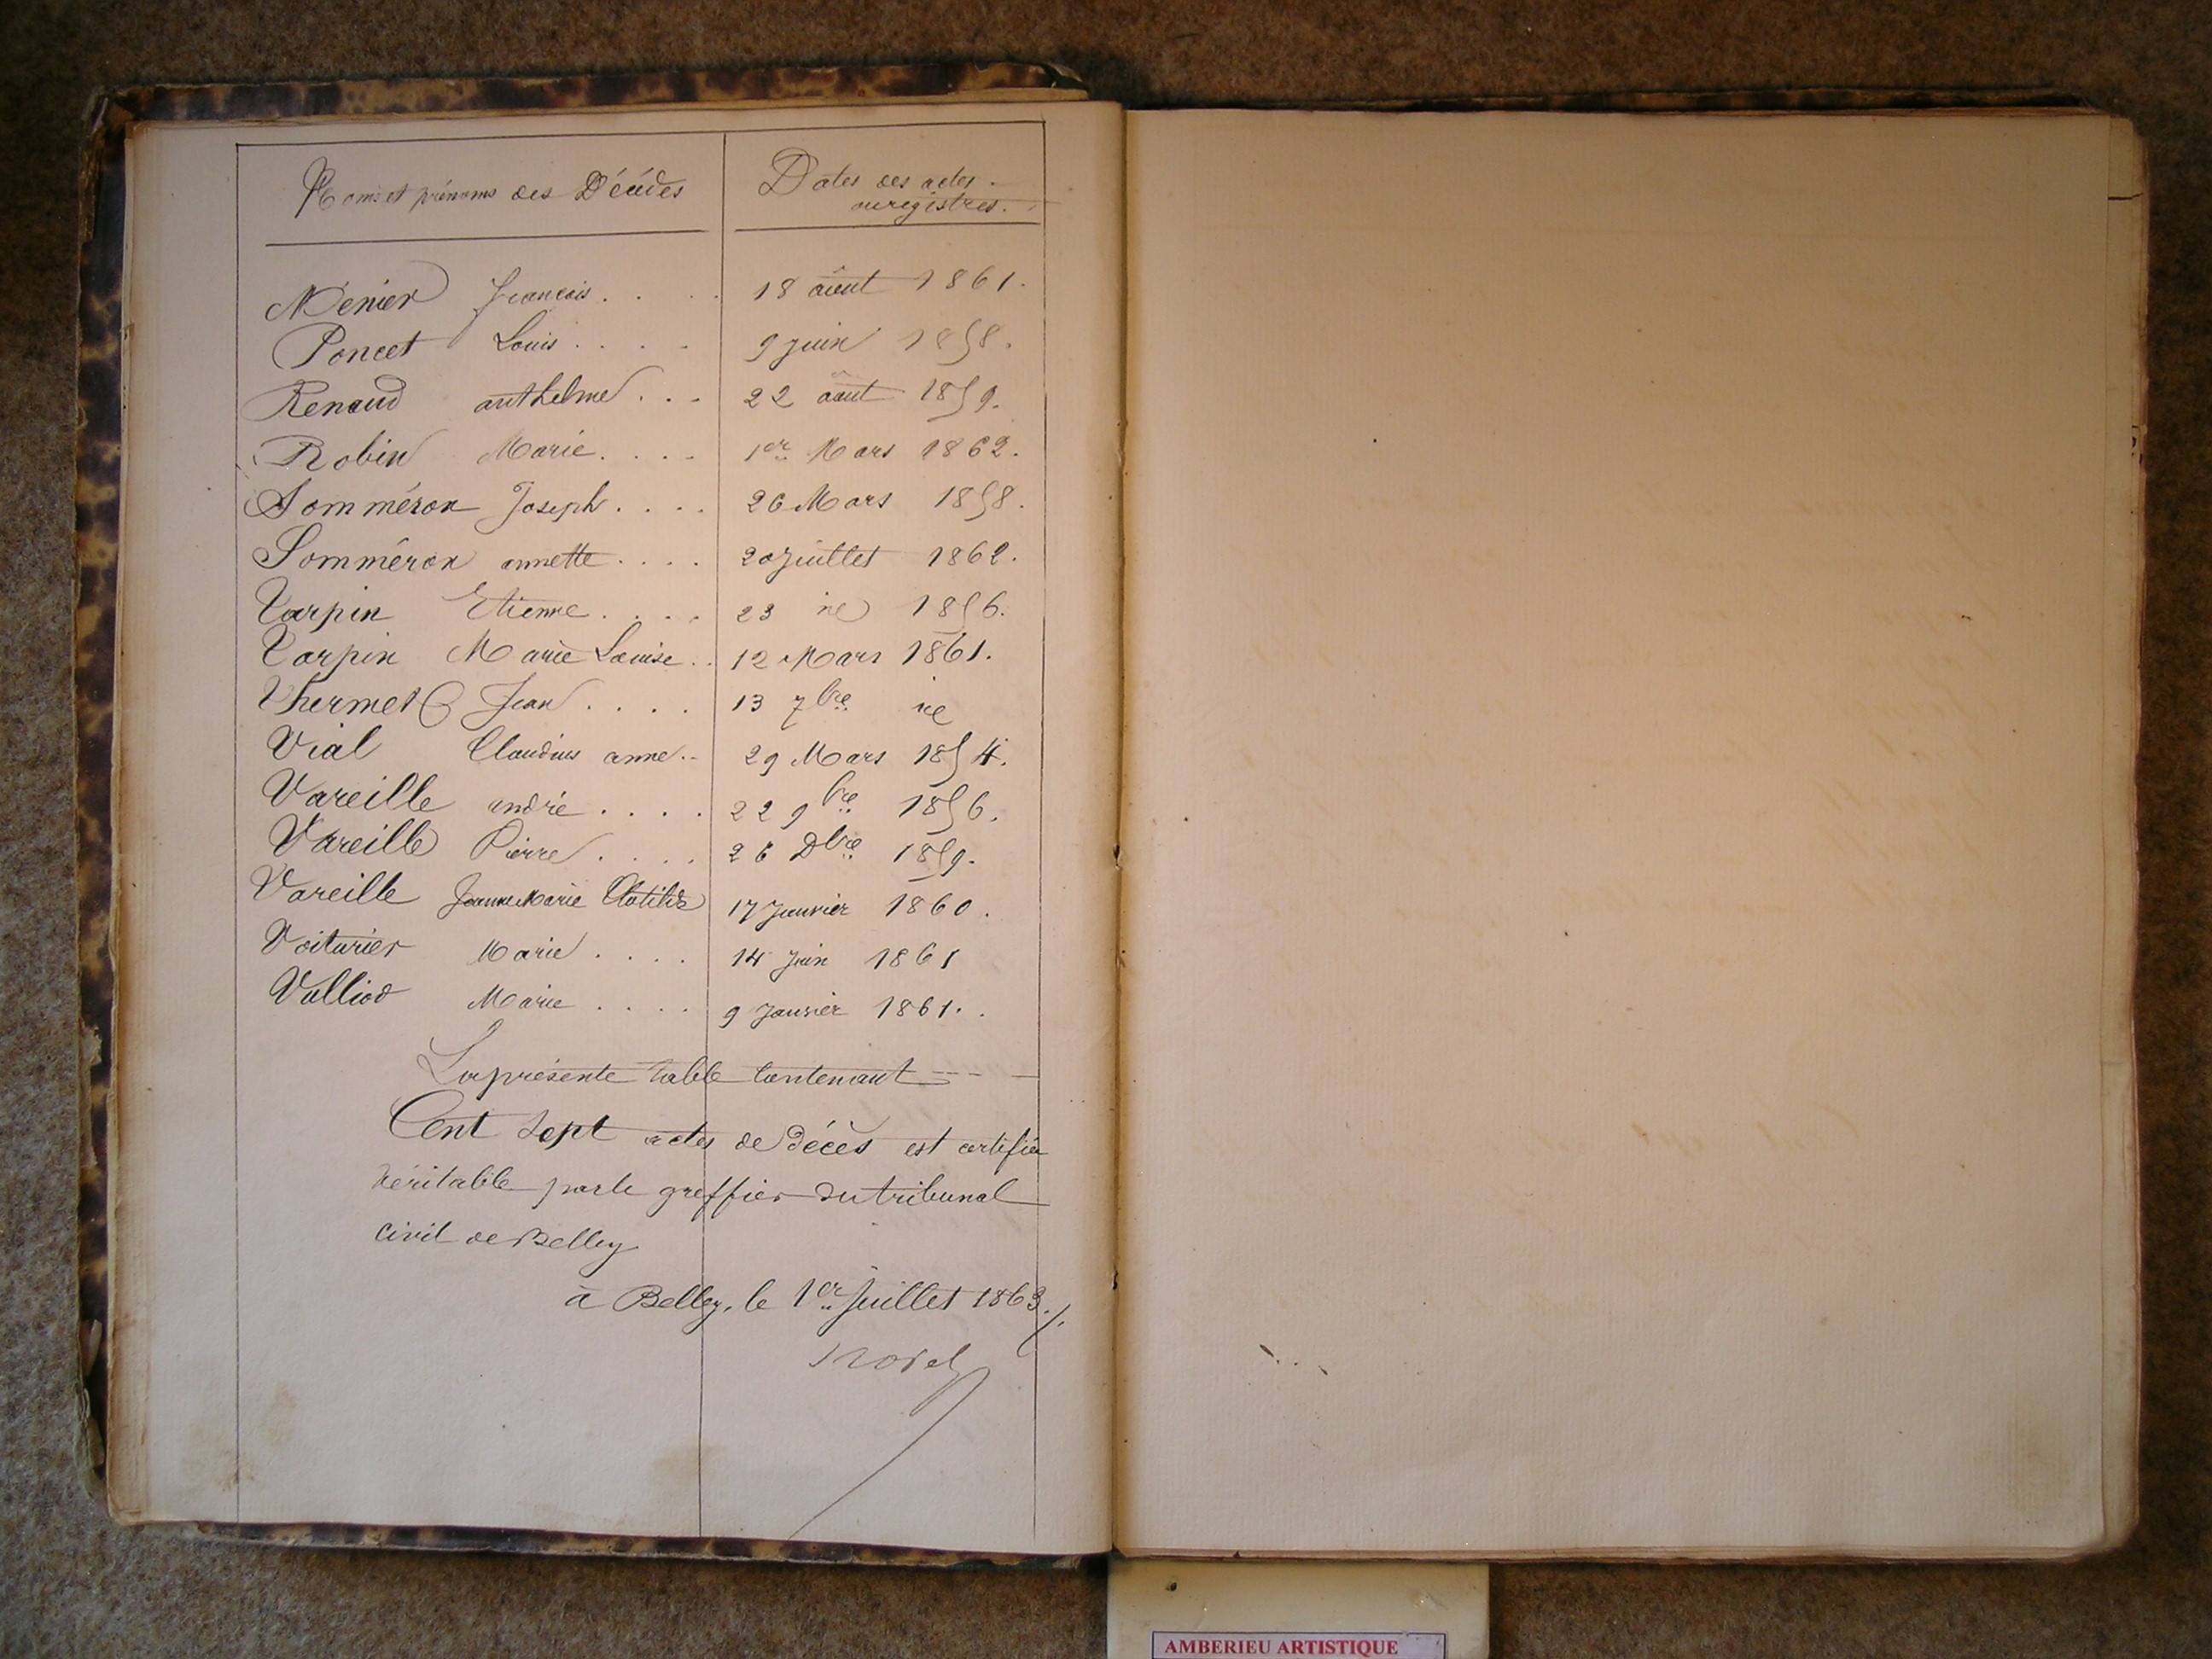 Noms et prénoms des Décédés
Dates des actes
aux registres.
Menier François . . . . 18 aôut 1861.
Poncet Louis . . . . 9 juin 1858.
Renaud anthelme . . . 22 aôut 1859.
Robin Marie . . . . 1er Mars 1862.
Somméron Joseph . . . . 26 Mars 1858.
Somméron annette . . . . 20 Juillet 1862.
Tarpin Etienne . . . . 23 1856.
Tarpin Marie Louise . . 12 Mars 1861.
Thermet Jean . . . . 13 7bre
Vial Claudius anne . . 29 Mars 1854.
Vareille andré . . . . 22 9bre 1856.
Vareille Pierre . . . . 26 Dbre 1859.
Vareille Jeanne Marie Clotilde 17 Janvier 1860.
Voiturier Marie . . . . 14 Juin 1861
Vulliod Marie . . . . 9 Janvier 1861.
La présente table contenant
Cent sept actes de décès est certifiée
véritable par le greffier du tribunal
civil de Belley
à Belley, le 1er Juillet 1863./.
AMBERIEU ARTISTIQUE